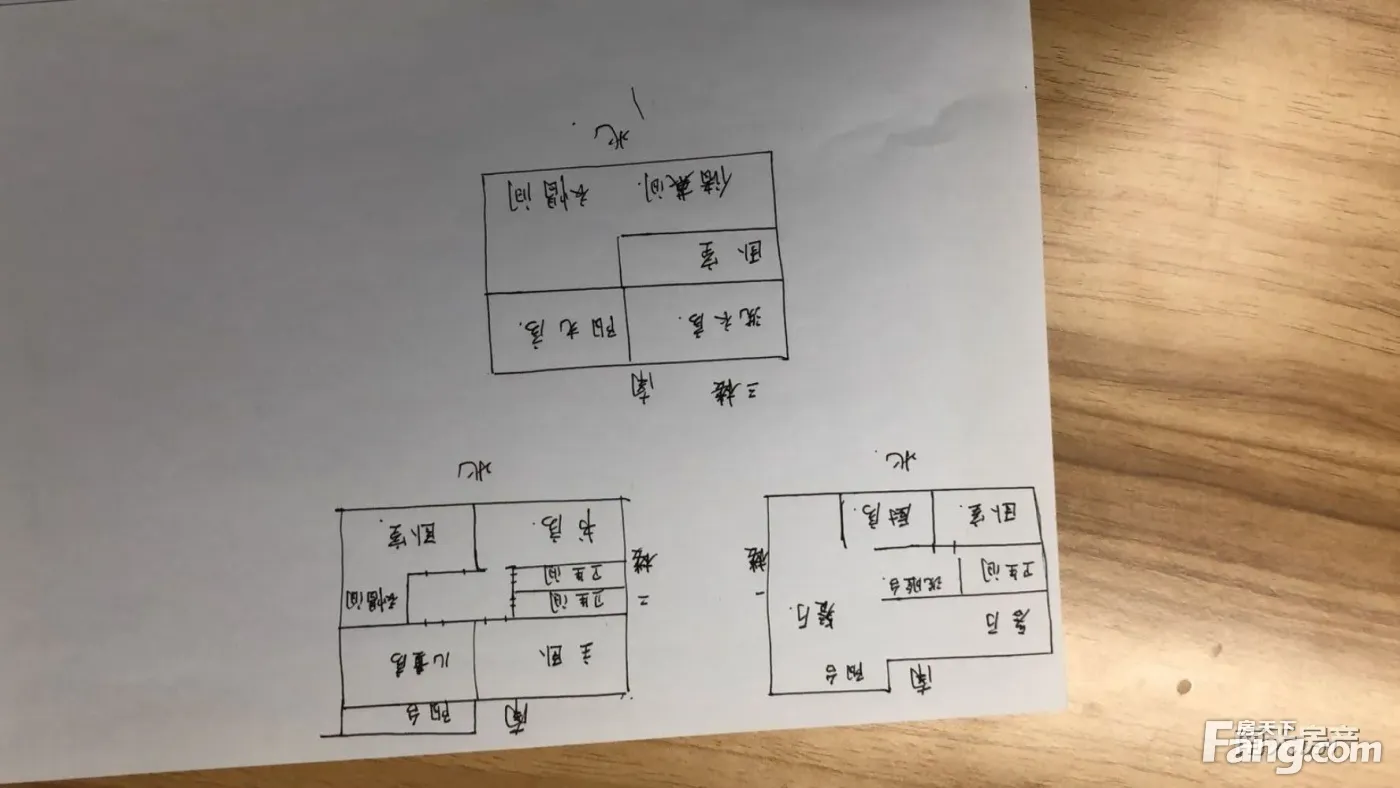 南
阳台
客厅
餐厅
卫生间
洗脸台
一楼
卧室
厨房
北
南
阳台
主卧
儿童房
二楼
卫生间
卫生间
衣帽间
书房
卧室
北
三楼
南
洗衣房
阳光房
卧室
储藏间
衣帽间
北
房天下
Fang.com
房产